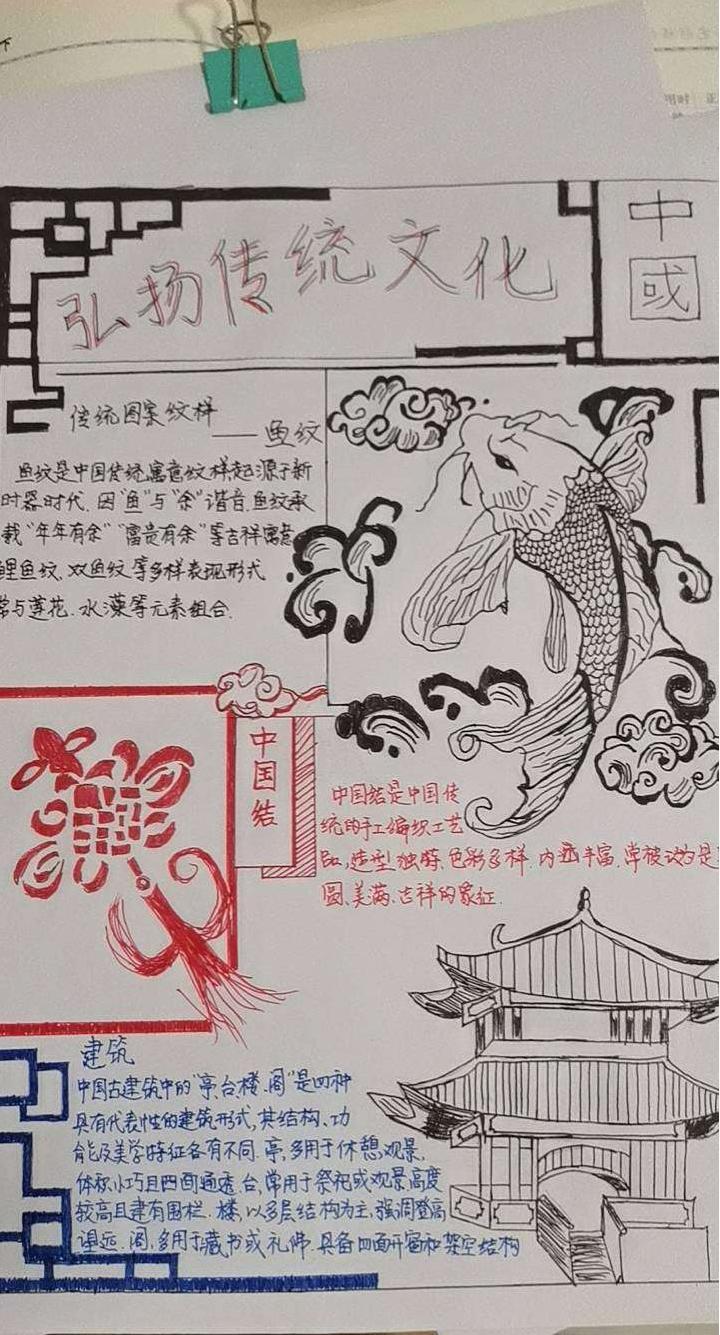 弘扬传统文化
中
國
传统图案纹样
——鱼纹
鱼纹是中国传统寓意纹样起源于新
时器时代.因"鱼"与"余"谐音.鱼纹承
载"年年有余""富贵有余"等吉祥寓意
鲤鱼纹.双鱼纹等多样表现形式
常与莲花.水藻等元素组合.
中国结
中国结是中国传
统的手工编织工艺
品,造型独特、色彩多样.内涵丰富.常被认为是
圆、美满、吉祥的象征.
建筑
中国古建筑中的"亭、台、楼、阁"是四种
具有代表性的建筑形式,其结构、功
能及美学特征各有不同.亭,多用于休憩,观景,
体积小巧且四面通透.台,常用于祭祀或观景高度
较高且建有围栏.楼,以多层结构为主,强调登高
望远.阁,多用于藏书或礼佛.具备四面开窗和架空结构